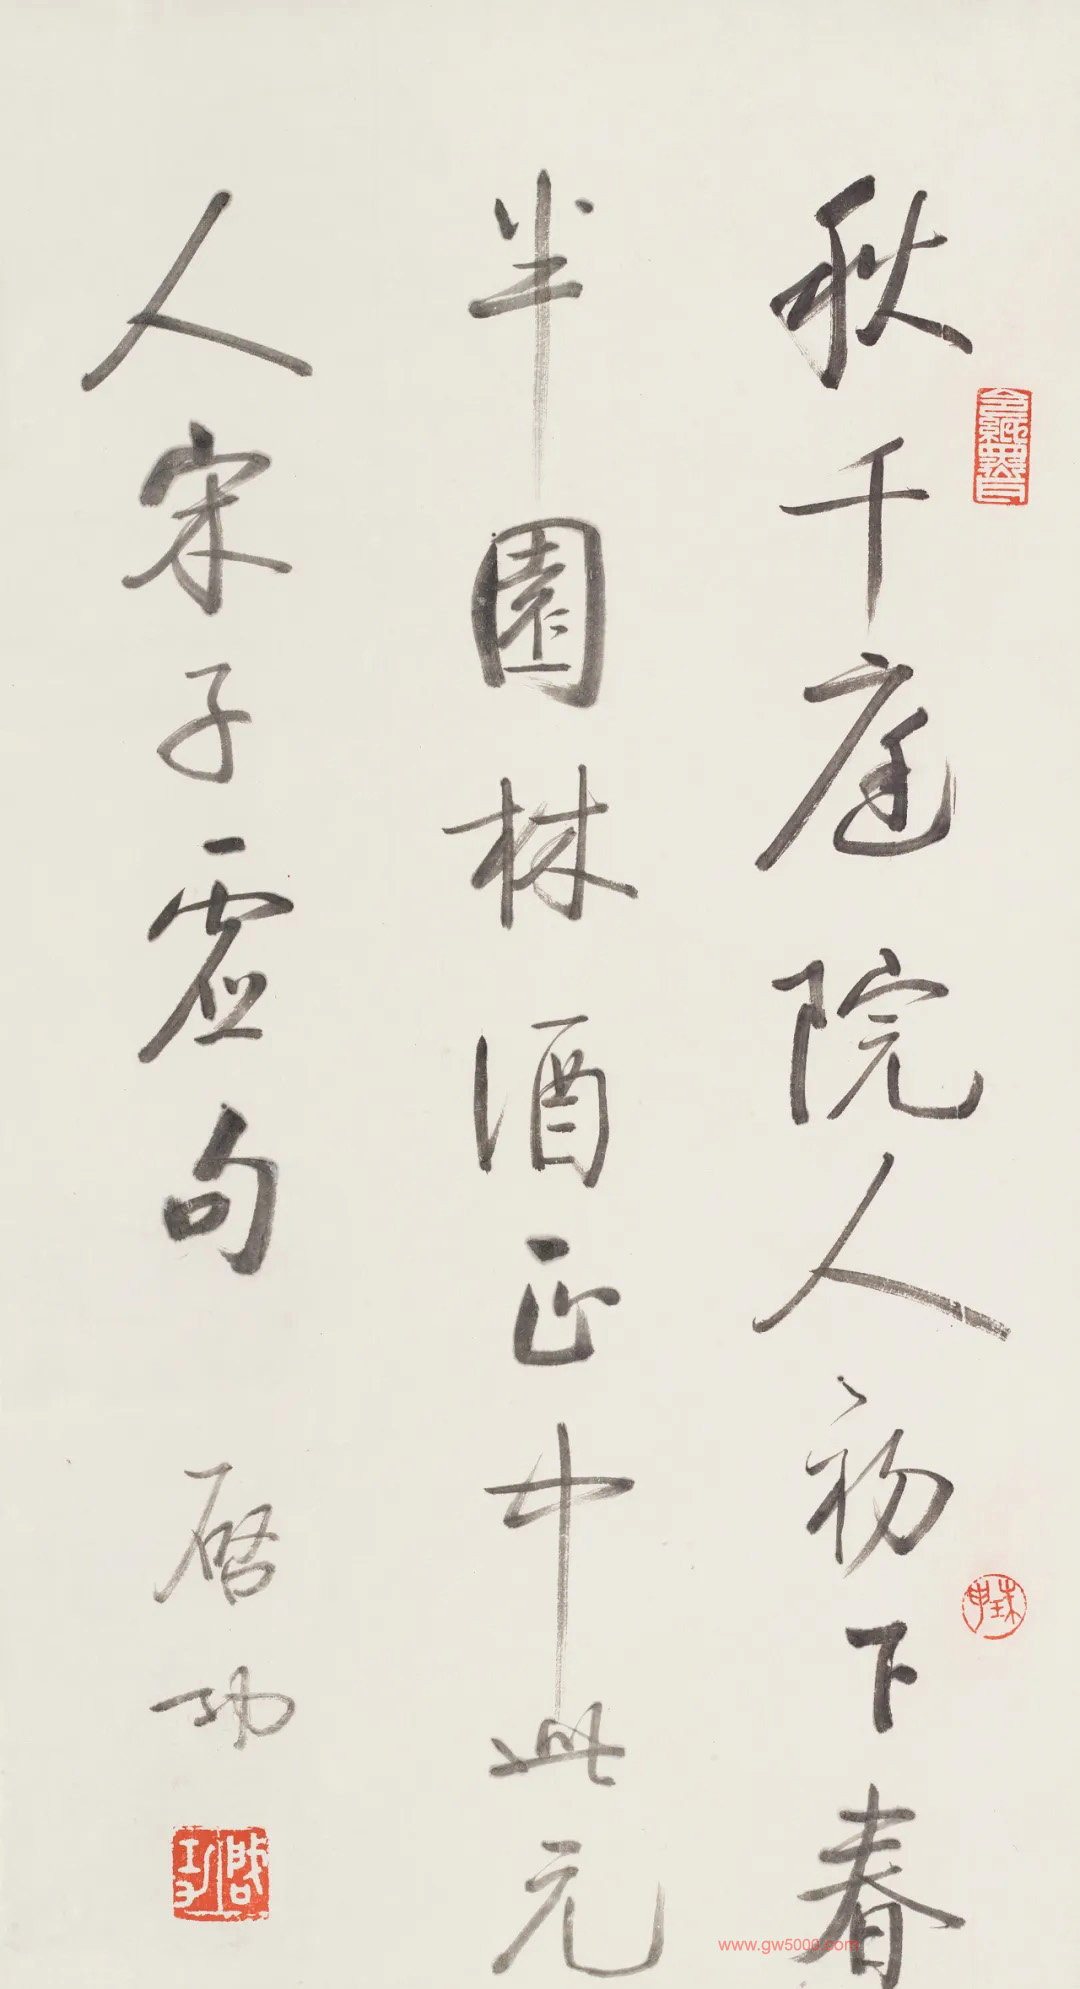 秋千庭院人初下春
半園林酒正中此元
人宋子虛句
啓功
啓功
www.gw5000.com